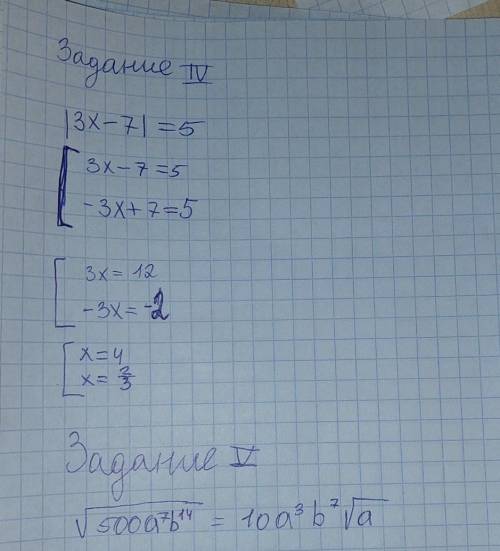 Задание IV
|3x-7|=5
3x-7=5
-3x+7=5
3x=12
-3x=-2
x=4
x=2/3
Задание V
√500a⁷b¹⁴ = 10a³b⁷√a